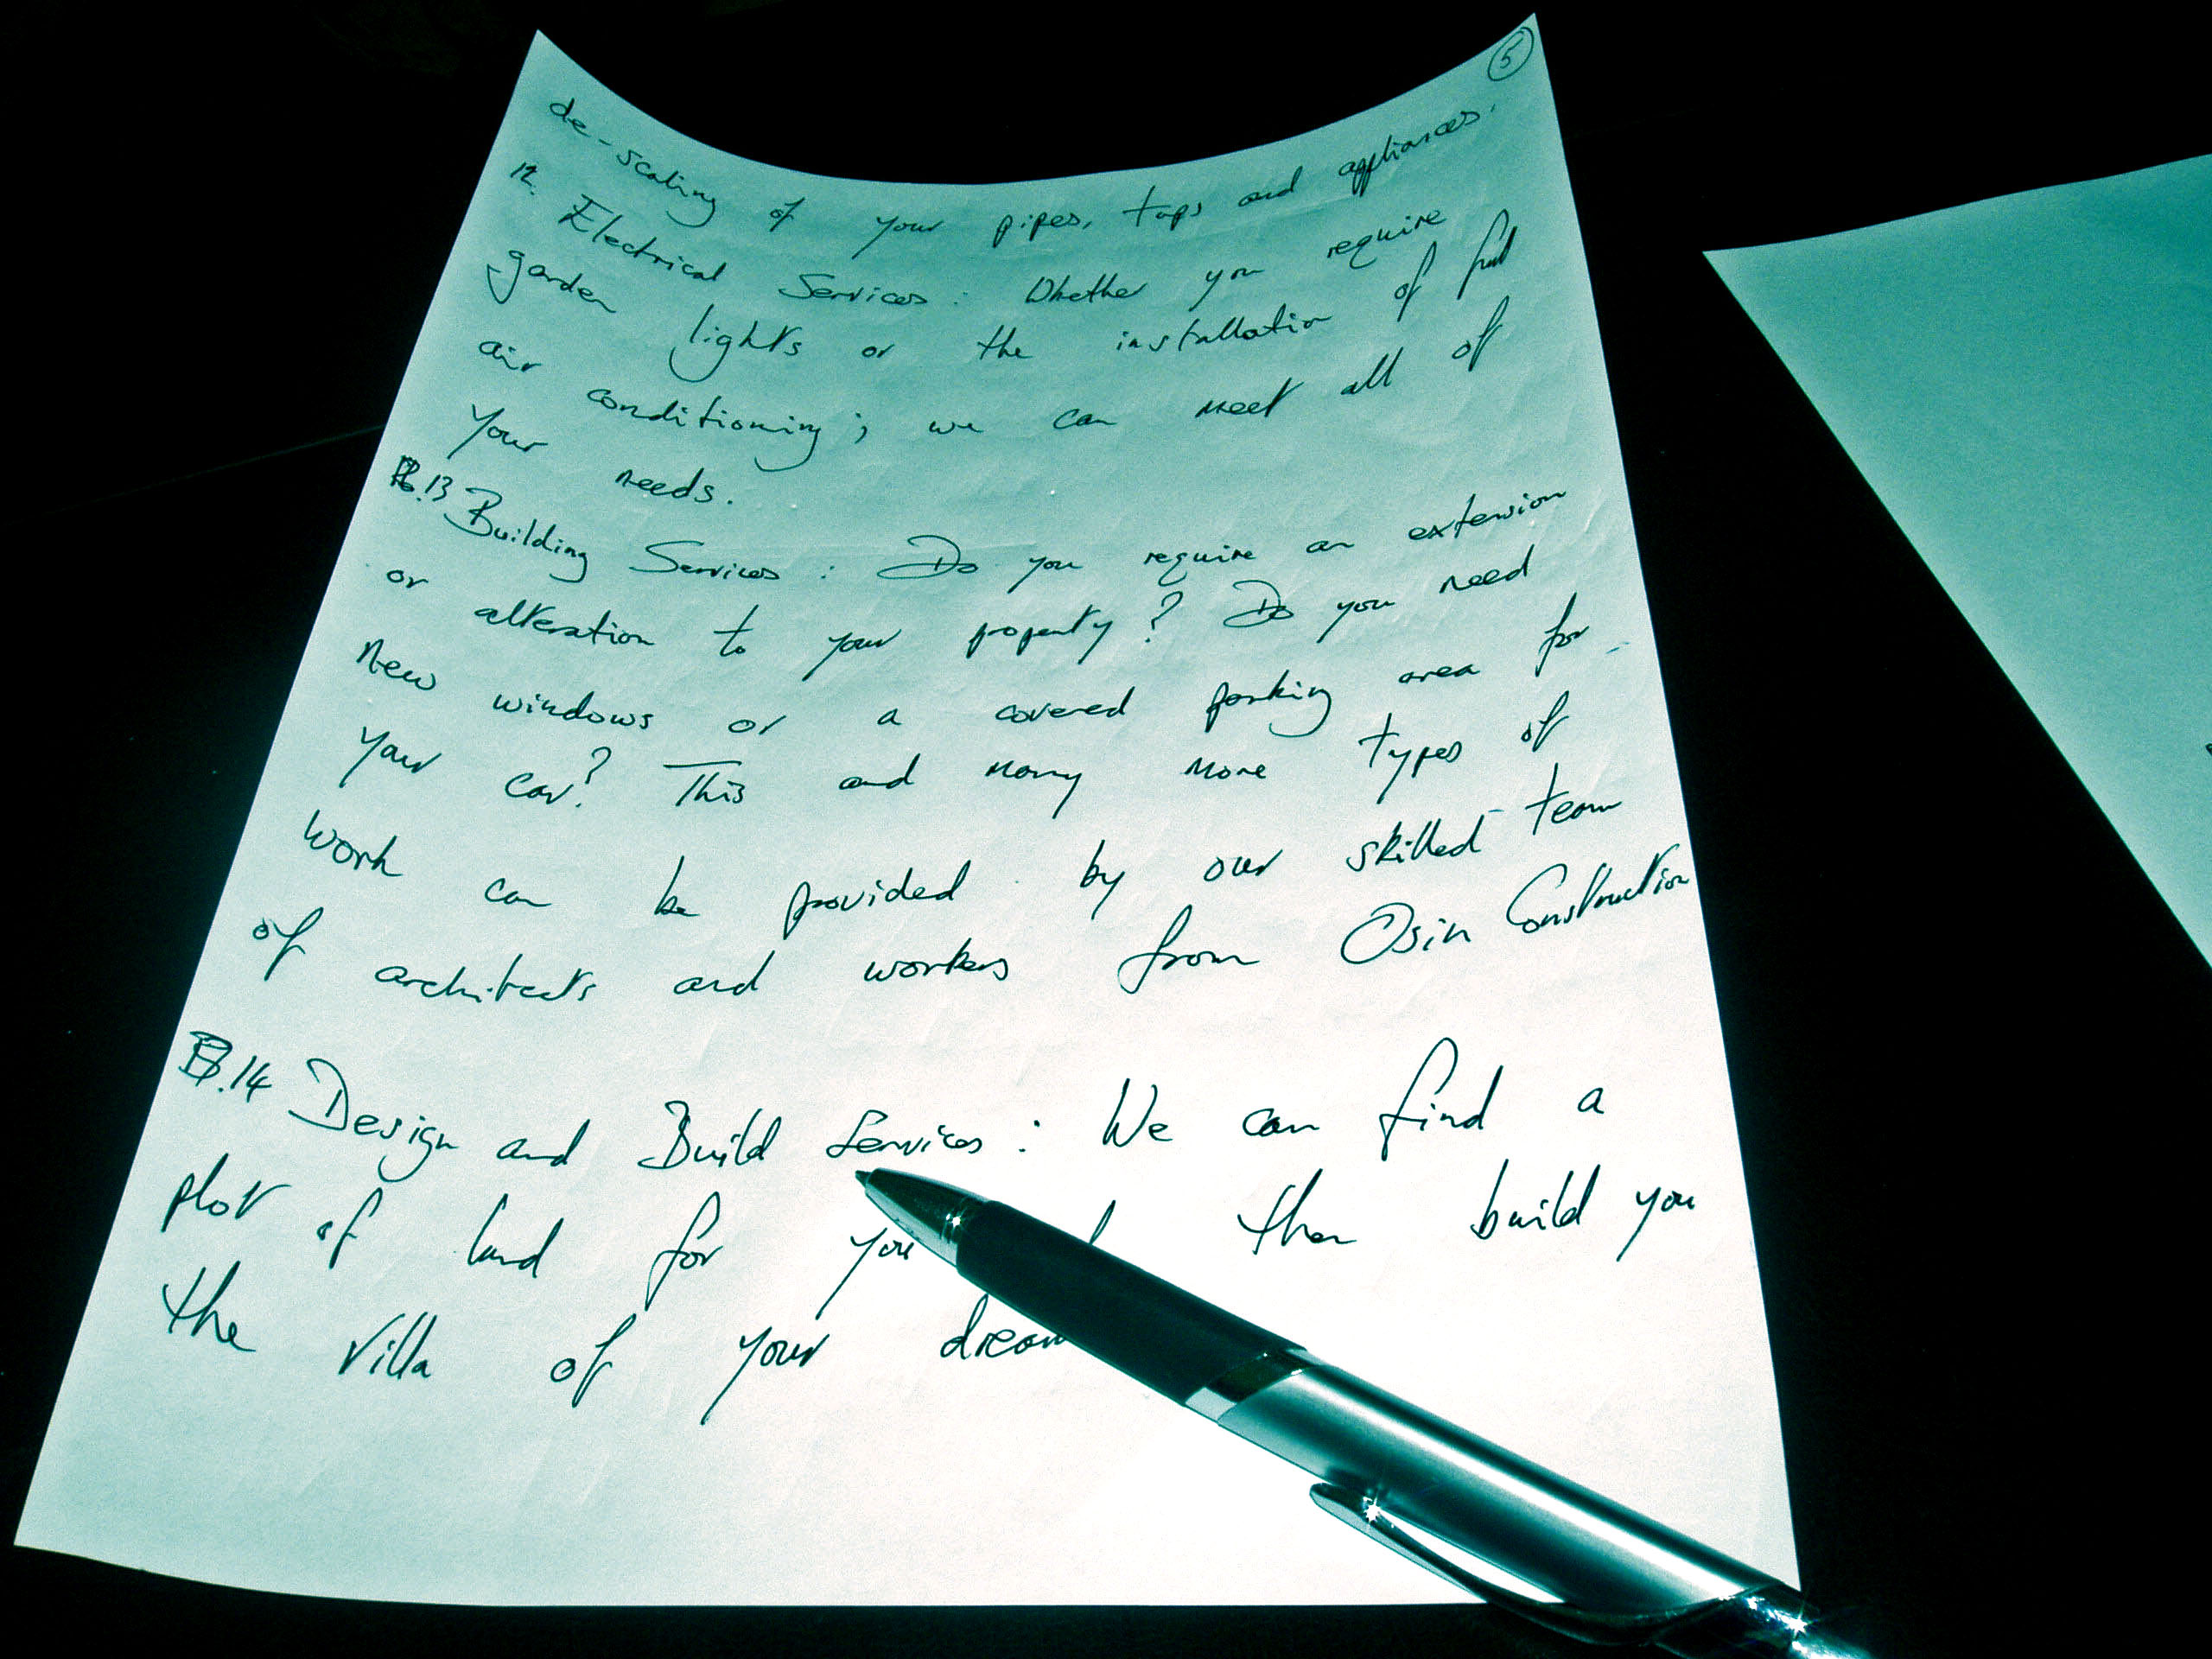 5
de-scaling of your pipes, taps and appliances.
12. Electrical Services: Whether you require
garden lights or the installation of full
air conditioning; we can meet all of
your needs.
13 Building Services: Do you require an extension
or alteration to your property? Do you need
new windows or a covered parking area for
your car? This and many more types of
work can be provided by our skilled team
of architects and workers from Osin Construction
14 Design and Build Services: We can find a
plot of land for you then build you
the villa of your dream